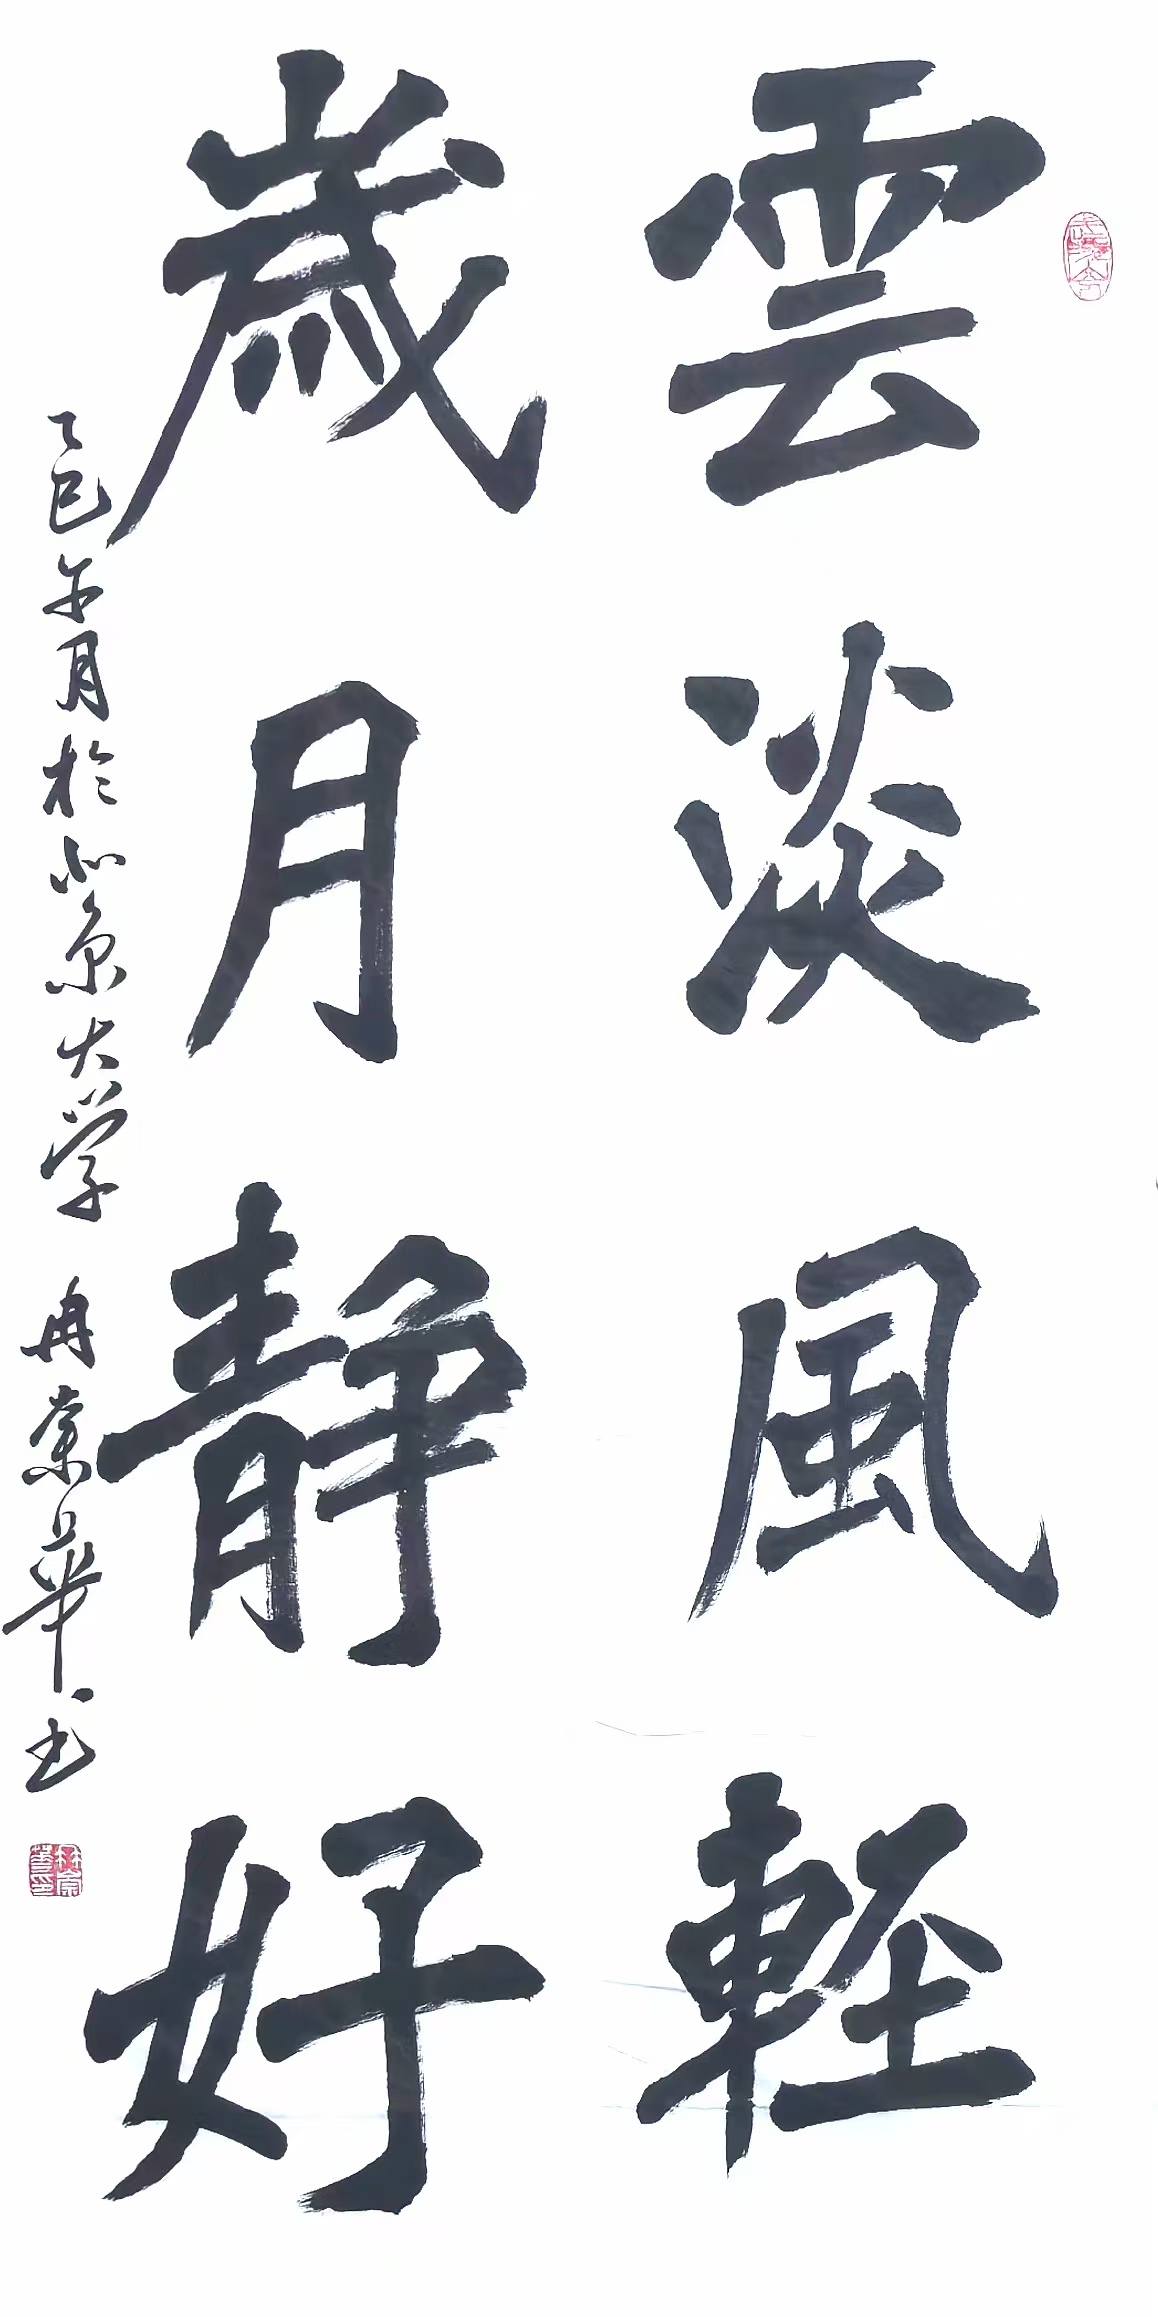 雲淡風輕
歲月静好
乙巳午月於北京大学 冉崇華书